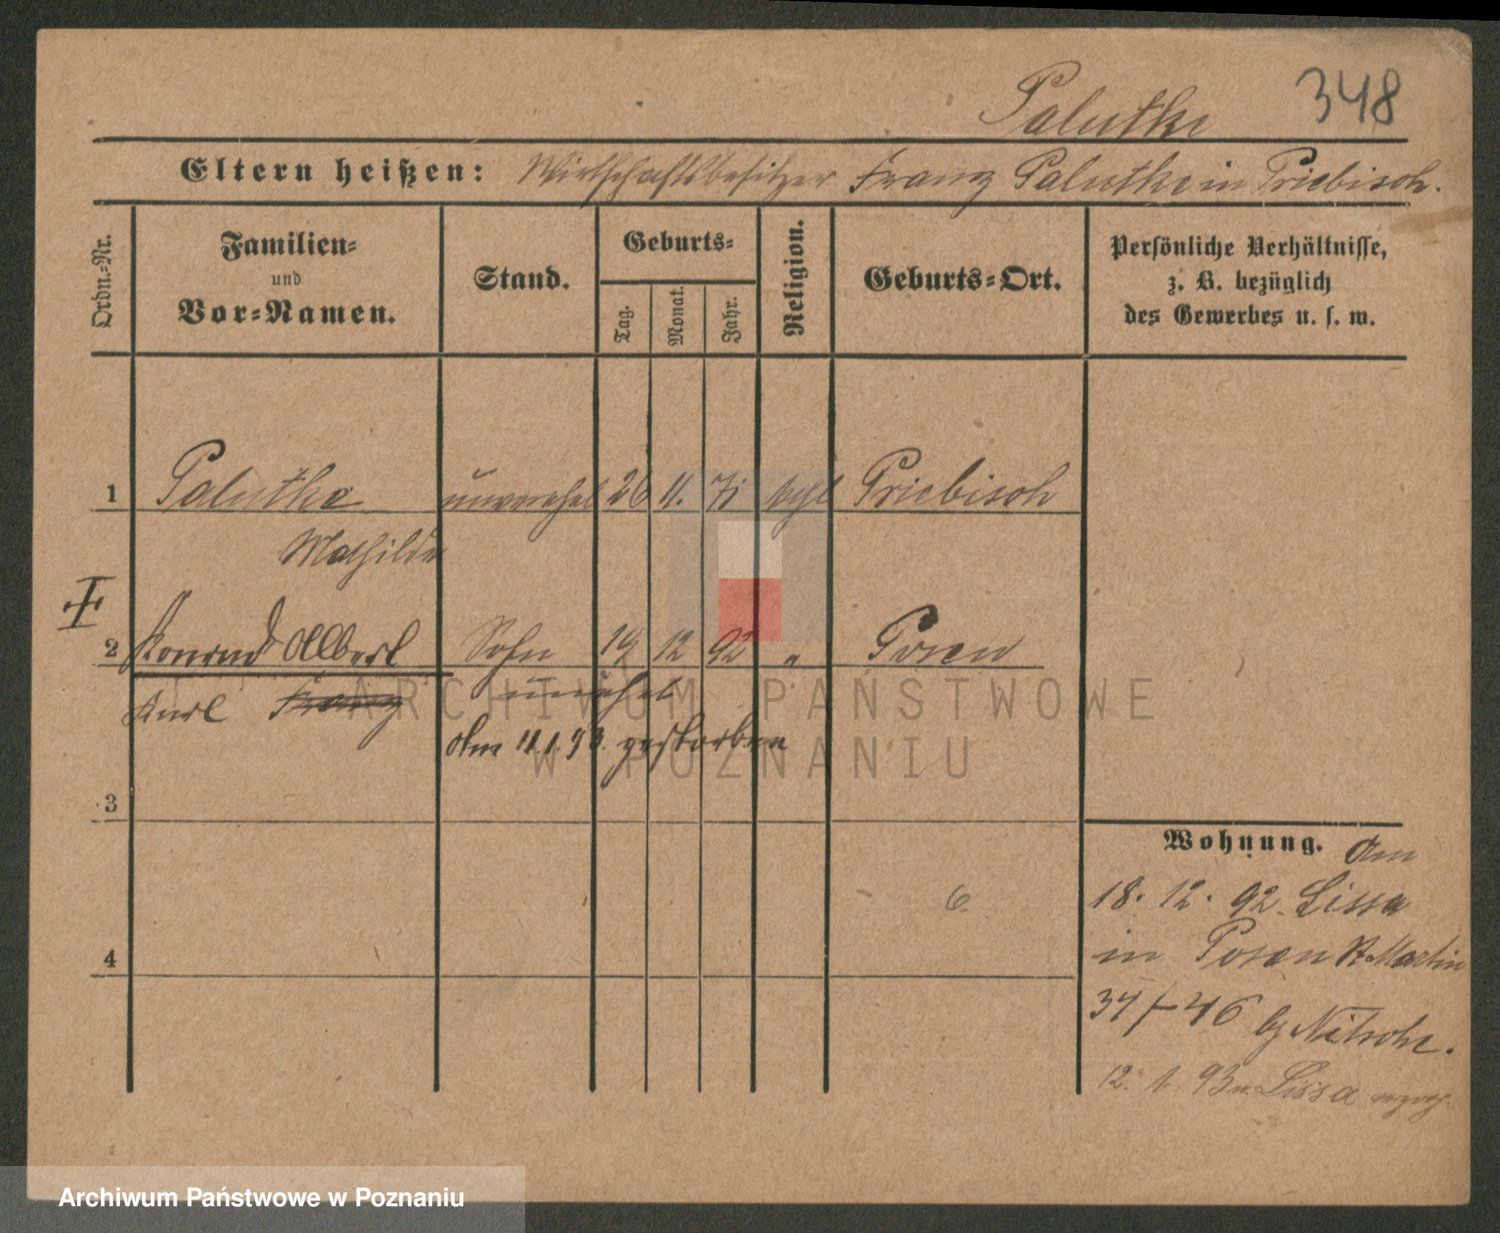 Palutke 348
Eltern heißen: Wirthschaftsbesitzer Franz Palutke in Priebisch.
Ordn.-Nr.
Familien-
und
Vor-Namen.
Stand.
Geburts-
Tag.
Monat.
Jahr.
Religion.
Geburts-Ort.
Persönliche Verhältnisse,
z. B. bezüglich
des Gewerbes u. s. w.
1 Palutke unverehel 26 11. 71 Priebisch
Mathilde
2 Konrad Albert Sohn 19 12 92 " Posen
Karl Franz unehel
Am 11.1.93. gestorben
3
4
6.
Wohnung. Am
18. 12. 92. Lissa
in Posen St. Martin
34/46 by Nitsche.
12. 1. 93 n. Lissa
ARCHIWUM PAŃSTWOWE
W POZNANIU
Archiwum Państwowe w Poznaniu